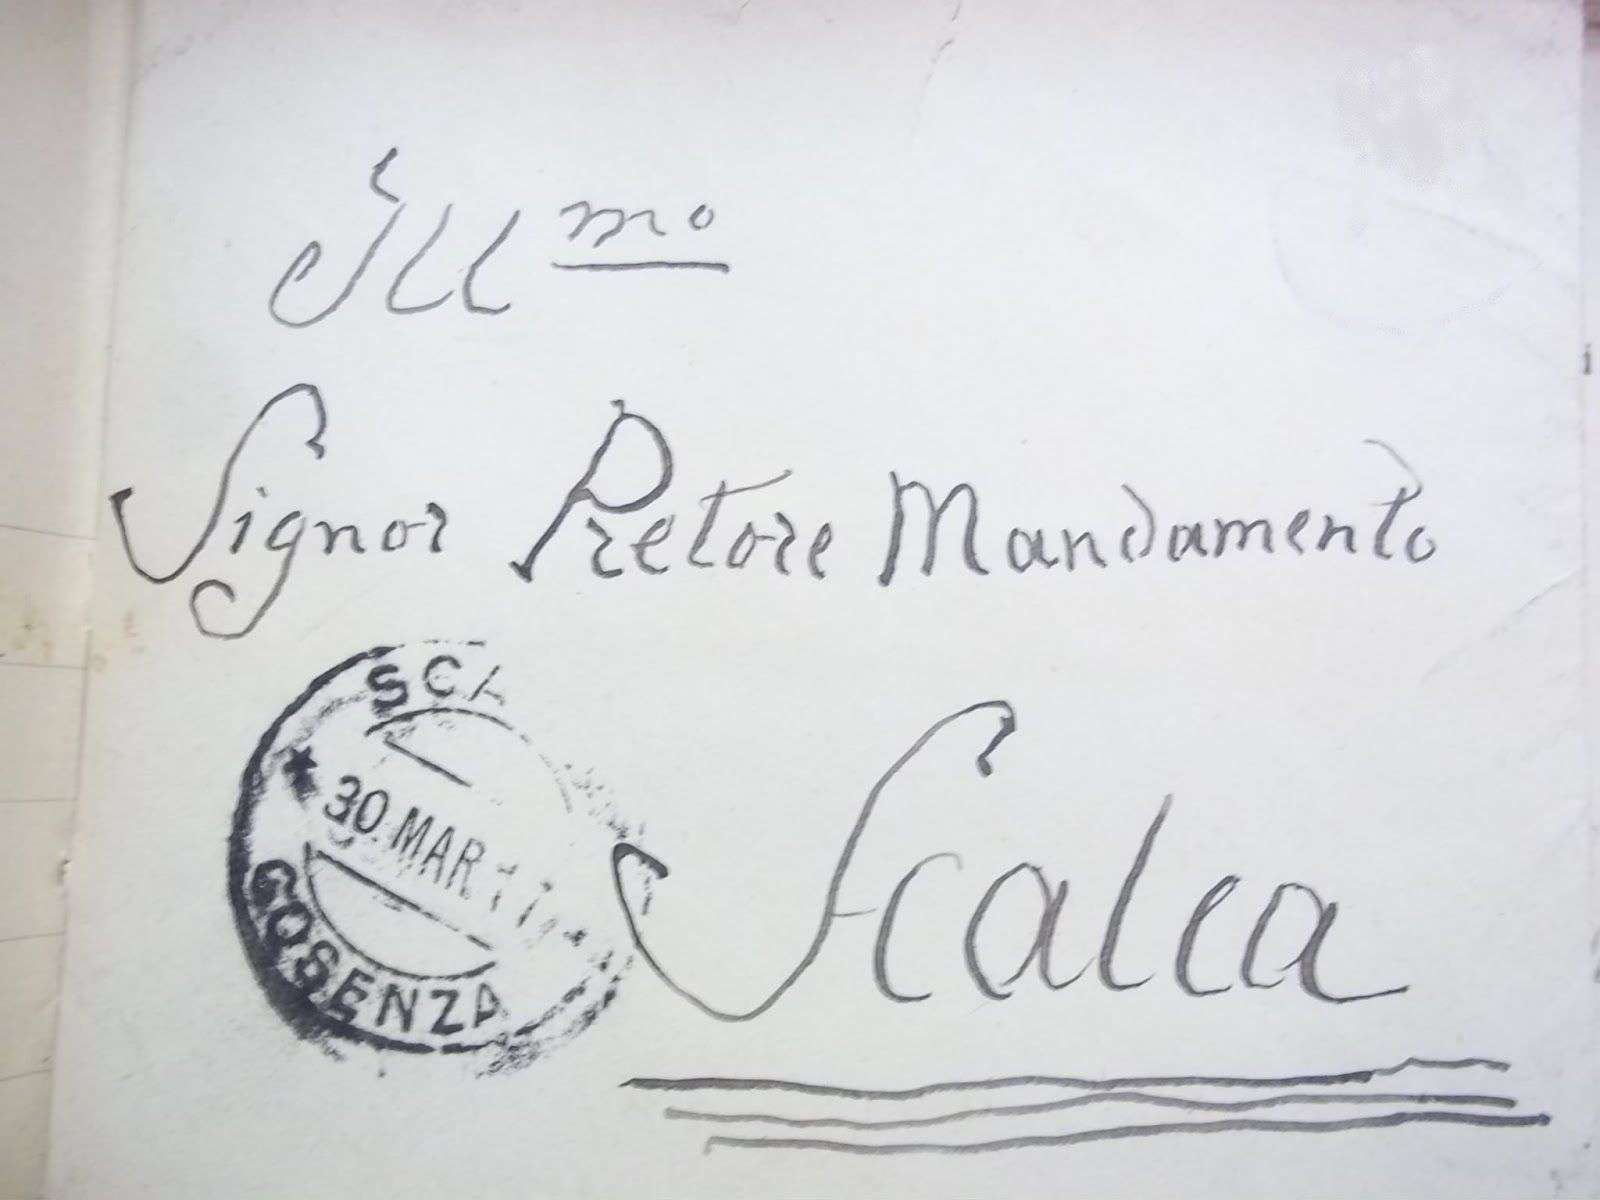 Ill mo
Signor Pretore Mandamento
Scalea
30 MAR
COSENZA